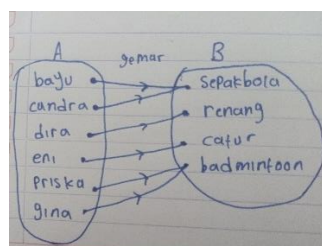 A gemar B
bayu
candra
dira
eni
Priska
gina
Sepakbola
renang
catur
badmintoon